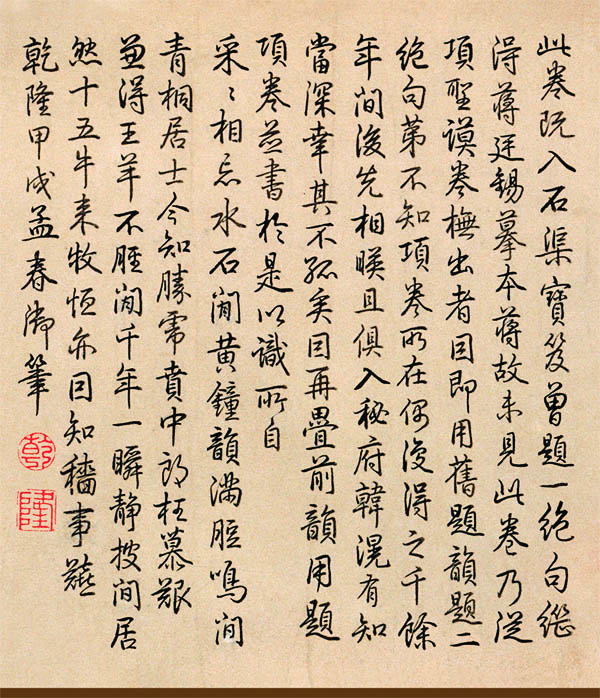 此卷既入石渠寶笈曾題一絕句繼
得蔣廷錫摹本蔣故未見此卷乃從
項聖謨卷橅出者因即用舊題韻題二
絕句第不知項卷所在偶復得之千餘
年間後先相暎且俱入秘府韓滉有知
當深幸其不孤矣因再疊前韻用題
項卷並書於是以識所自
采〻相忘水石間黃鐘韻滿脰鳴間
青桐居士今知勝需賁中郎枉慕艱
兼得王羊不脛間千年一瞬靜披間居
然十五牛来牧恒亦因知穡事艱
乾隆甲戌孟春御筆
乾
隆